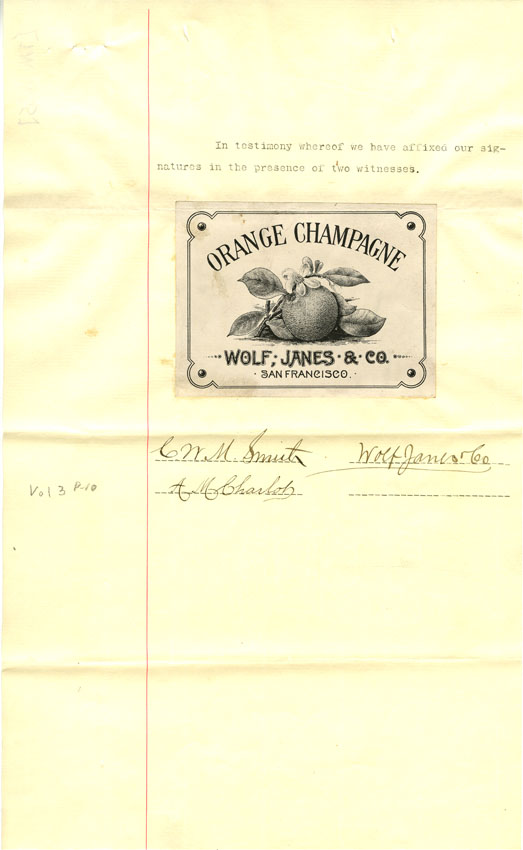 In testimony whereof we have affixed our sig-
natures in the presence of two witnesses.
ORANGE CHAMPAGNE
WOLF, JANES & CO.
SAN FRANCISCO.
C W M Smith Wolf Janes & Co
A M Charlot
Vol 3 P-10